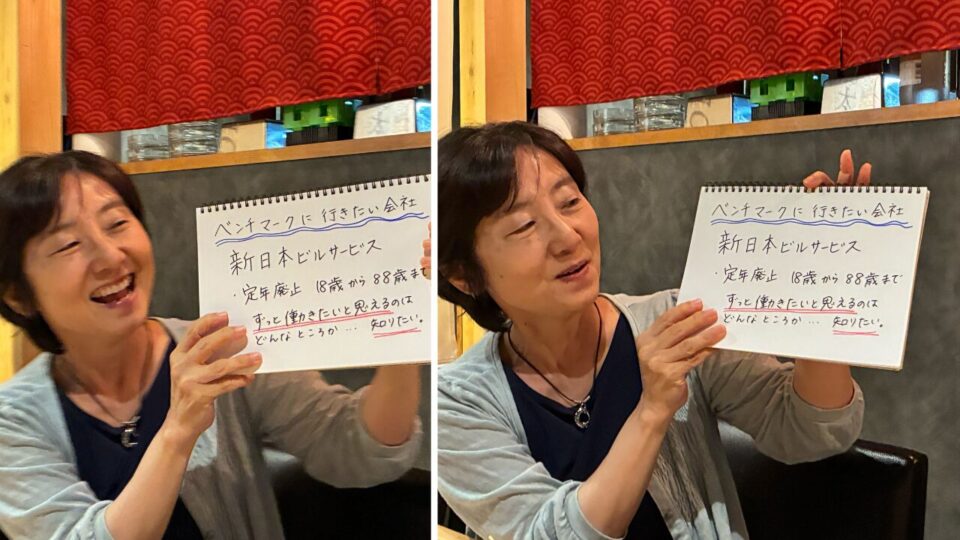 ベンチマークに行きたい会社
新日本ビルサービス
・定年廃止 18歳から88歳まで
ずっと働きたいと思えるのは
どんなところか… 知りたい。
ベンチマークに行きたい会社
新日本ビルサービス
・定年廃止 18歳から88歳まで
ずっと働きたいと思えるのは
どんなところか… 知りたい。